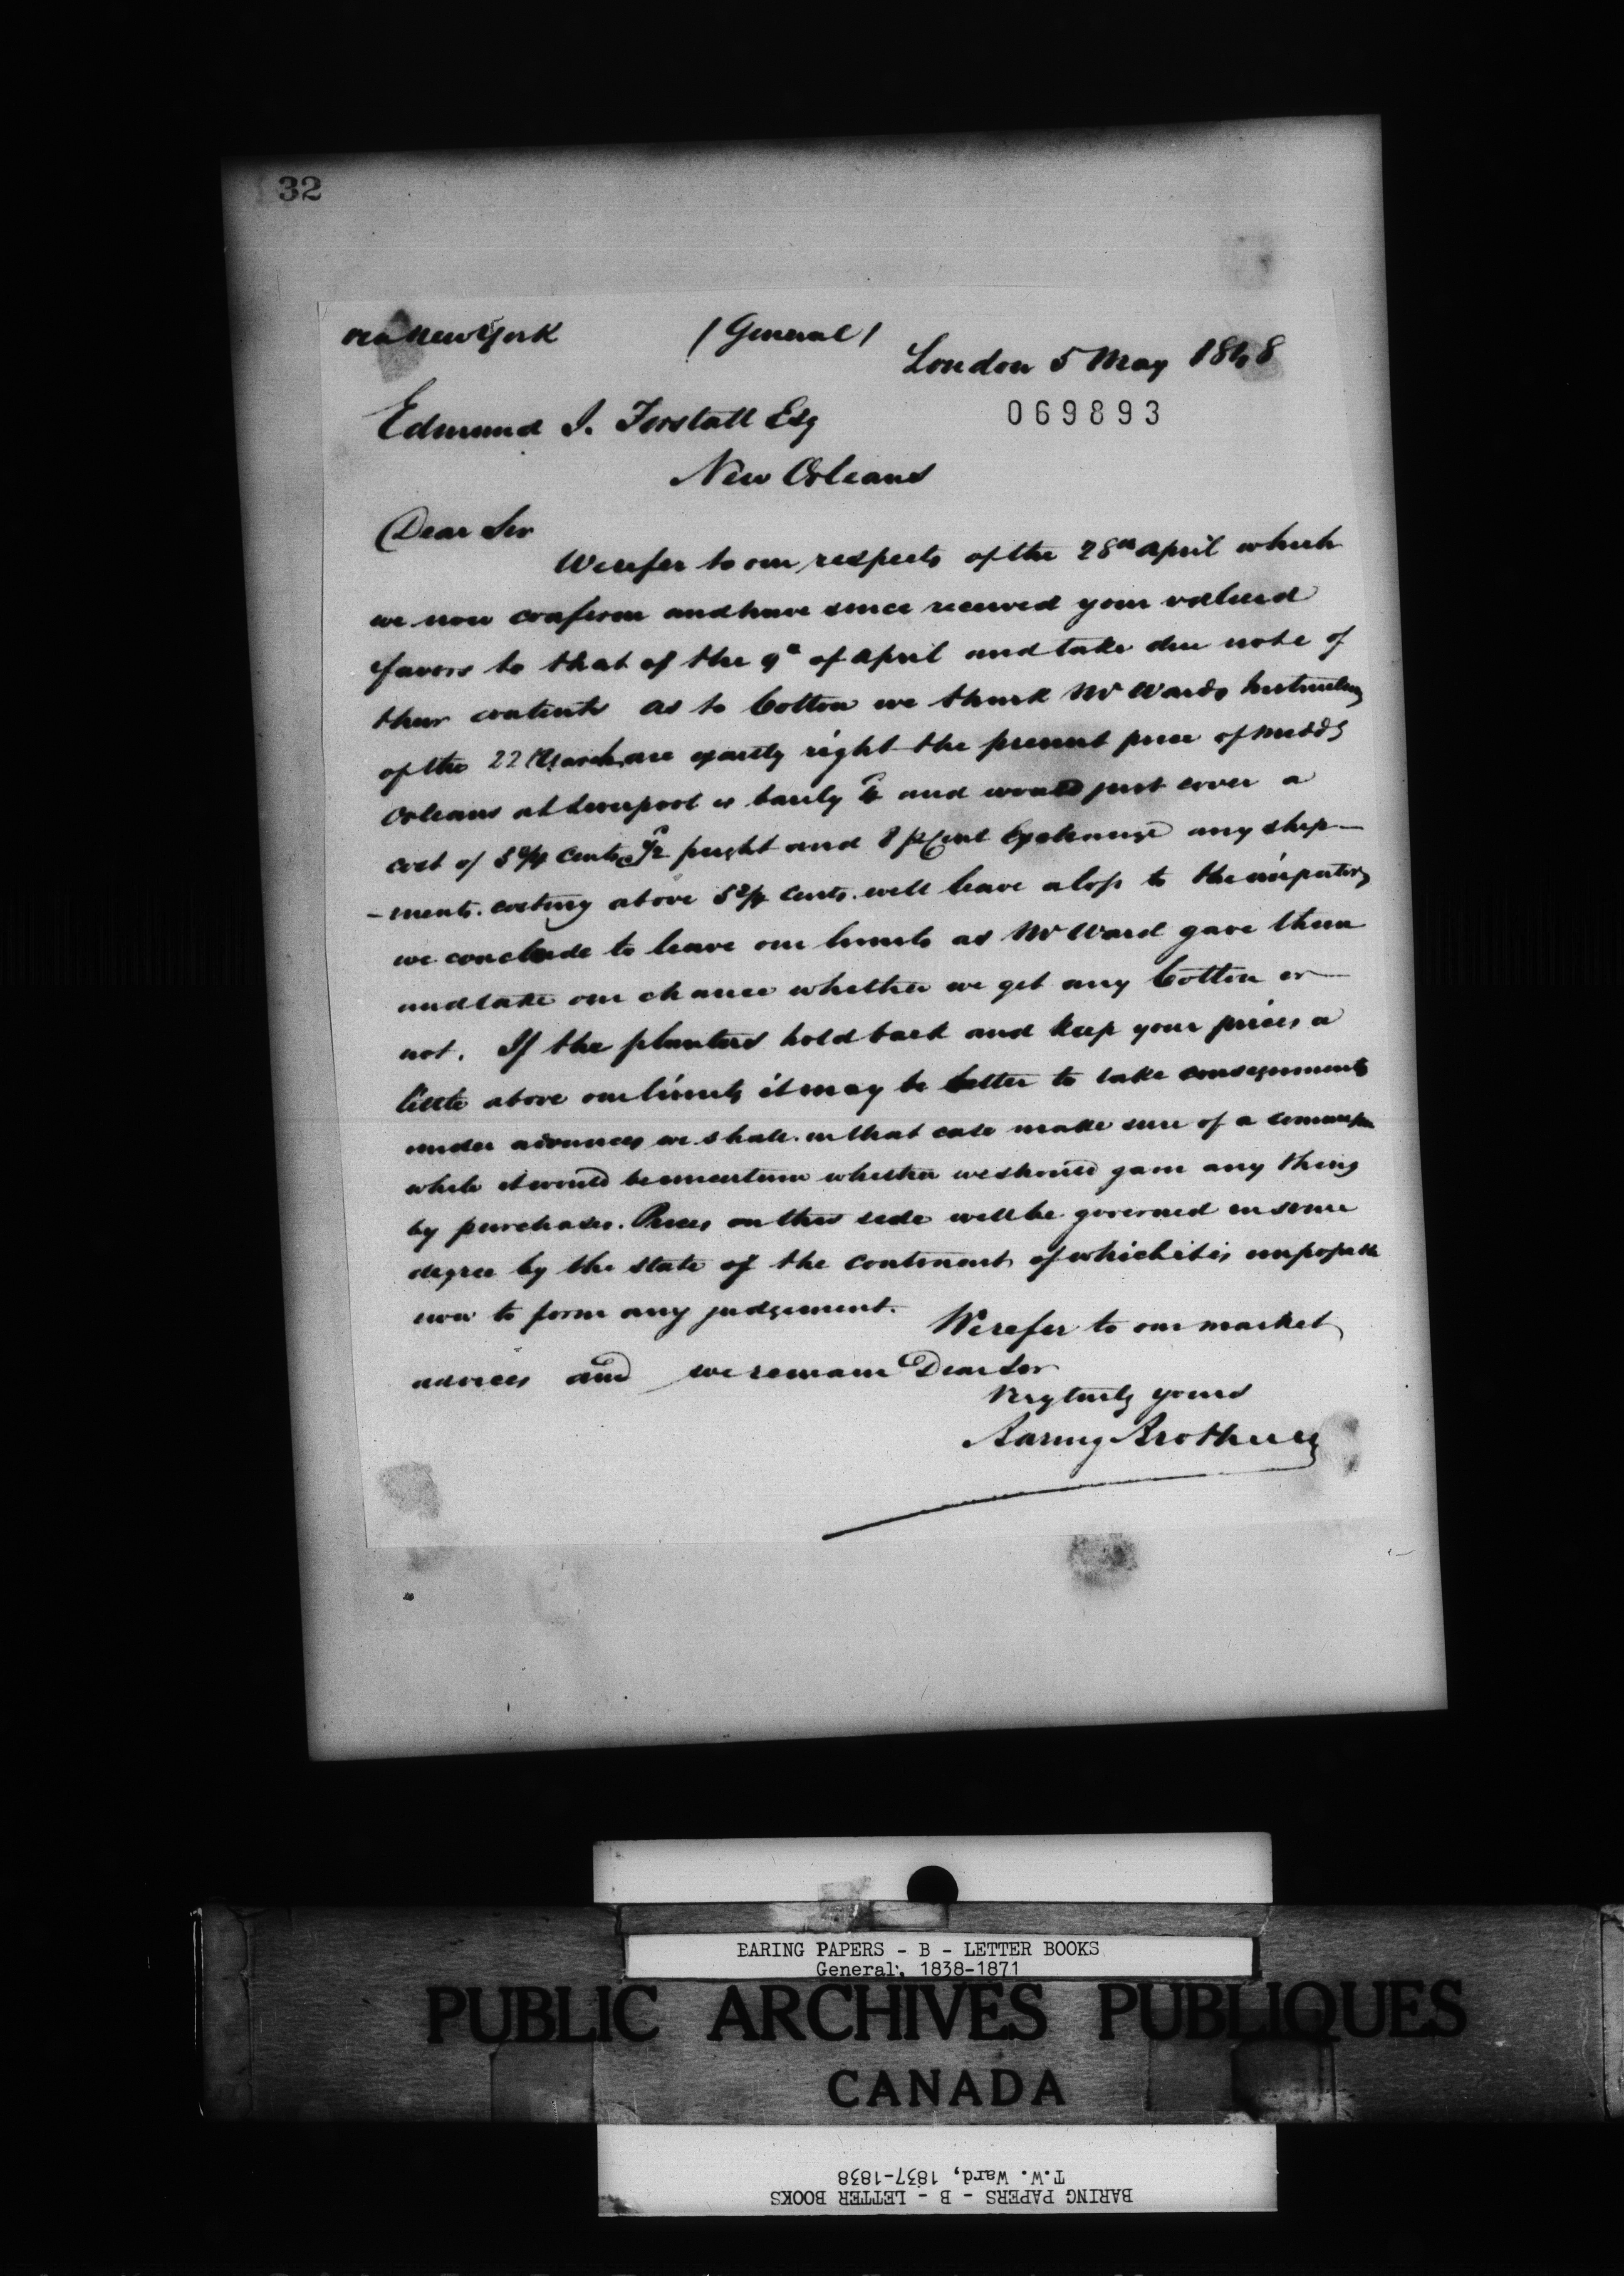 32
via New York
/ General /
London 5 May 1848
069893
Edmund J. Forstall Esq
New Orleans
Dear Sir
We refer to our respects of the 28th April which
we now confirm and have since received your valued
favors to that of the 9th of April and take due note of
their contents as to Cotton we think Mr Wards Instructions
of the 22 March are exactly right the present price of midd
Orleans at Liverpool is barely and would just cover a
cost of 5 3/4 Cents 1/2 freight and 8 pCent Exchange any ship-
-ments costing above 5 3/4 Cents will leave a loss to the importers
we conclude to leave our limits as Mr Ward gave them
and take our chance whether we get any Cotton or
not. If the planters hold back and keep your prices a
little above our limits it may be better to take consignments
under advances we shall in that case make sure of a commission
while it would be uncertain whether we should gain any thing
by purchases. Prices on this side will be governed in some
degree by the state of the continent of which it is impossible
now to form any judgement. We refer to our market
advices and we remain Dear Sir
Very truly yours
Baring Brothers
BARING PAPERS - B - LETTER BOOKS
General, 1838-1871
PUBLIC ARCHIVES PUBLIQUES
CANADA
T.W. Ward, 1837-1838
BARING PAPERS - B - LETTER BOOKS